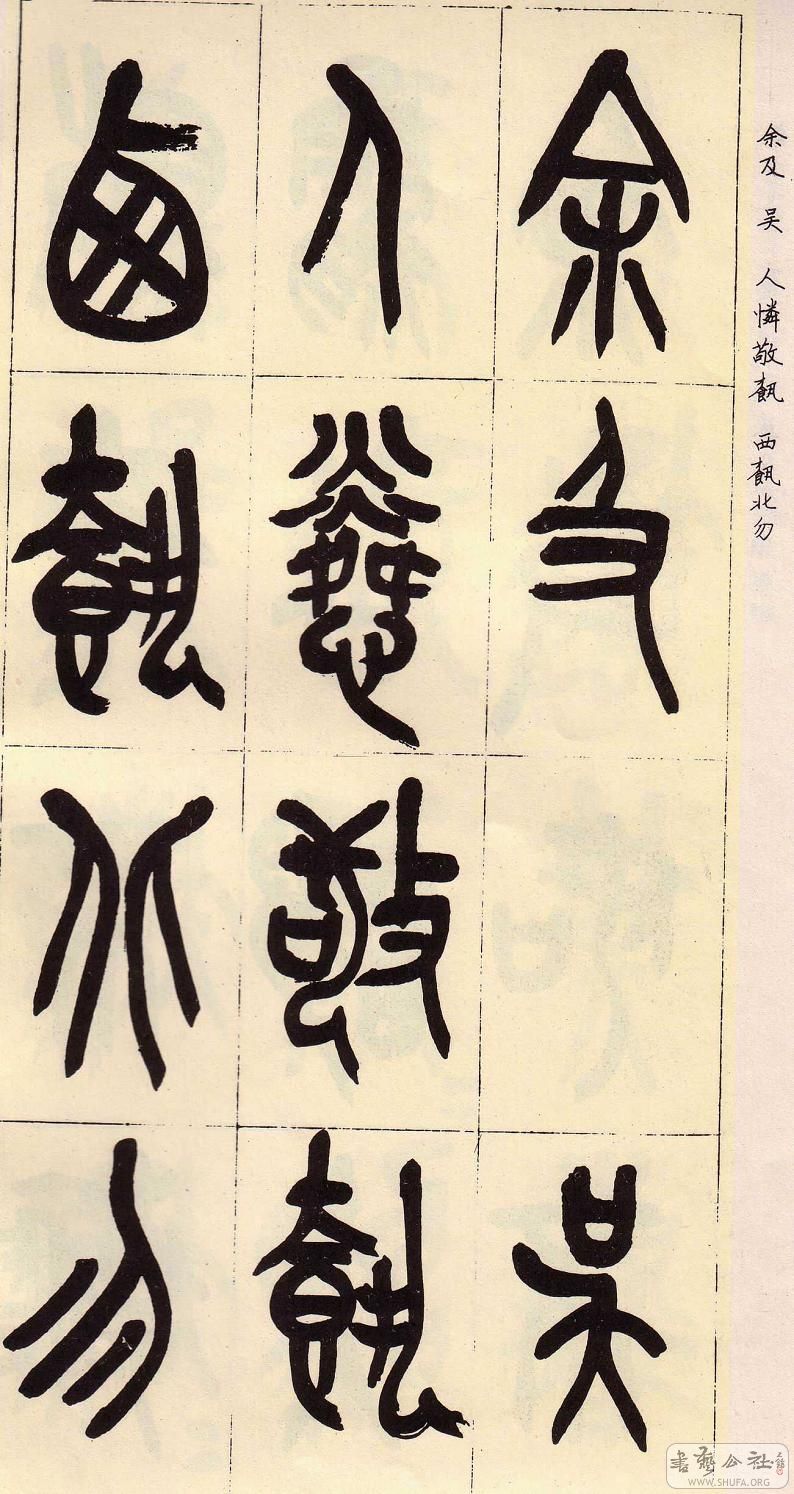 余及 吴 人憐敬𩛥 西𩛥北勿
余及 吴
人憐敬𩛥
西𩛥北勿
書藝公社
WWW.SHUFA.ORG